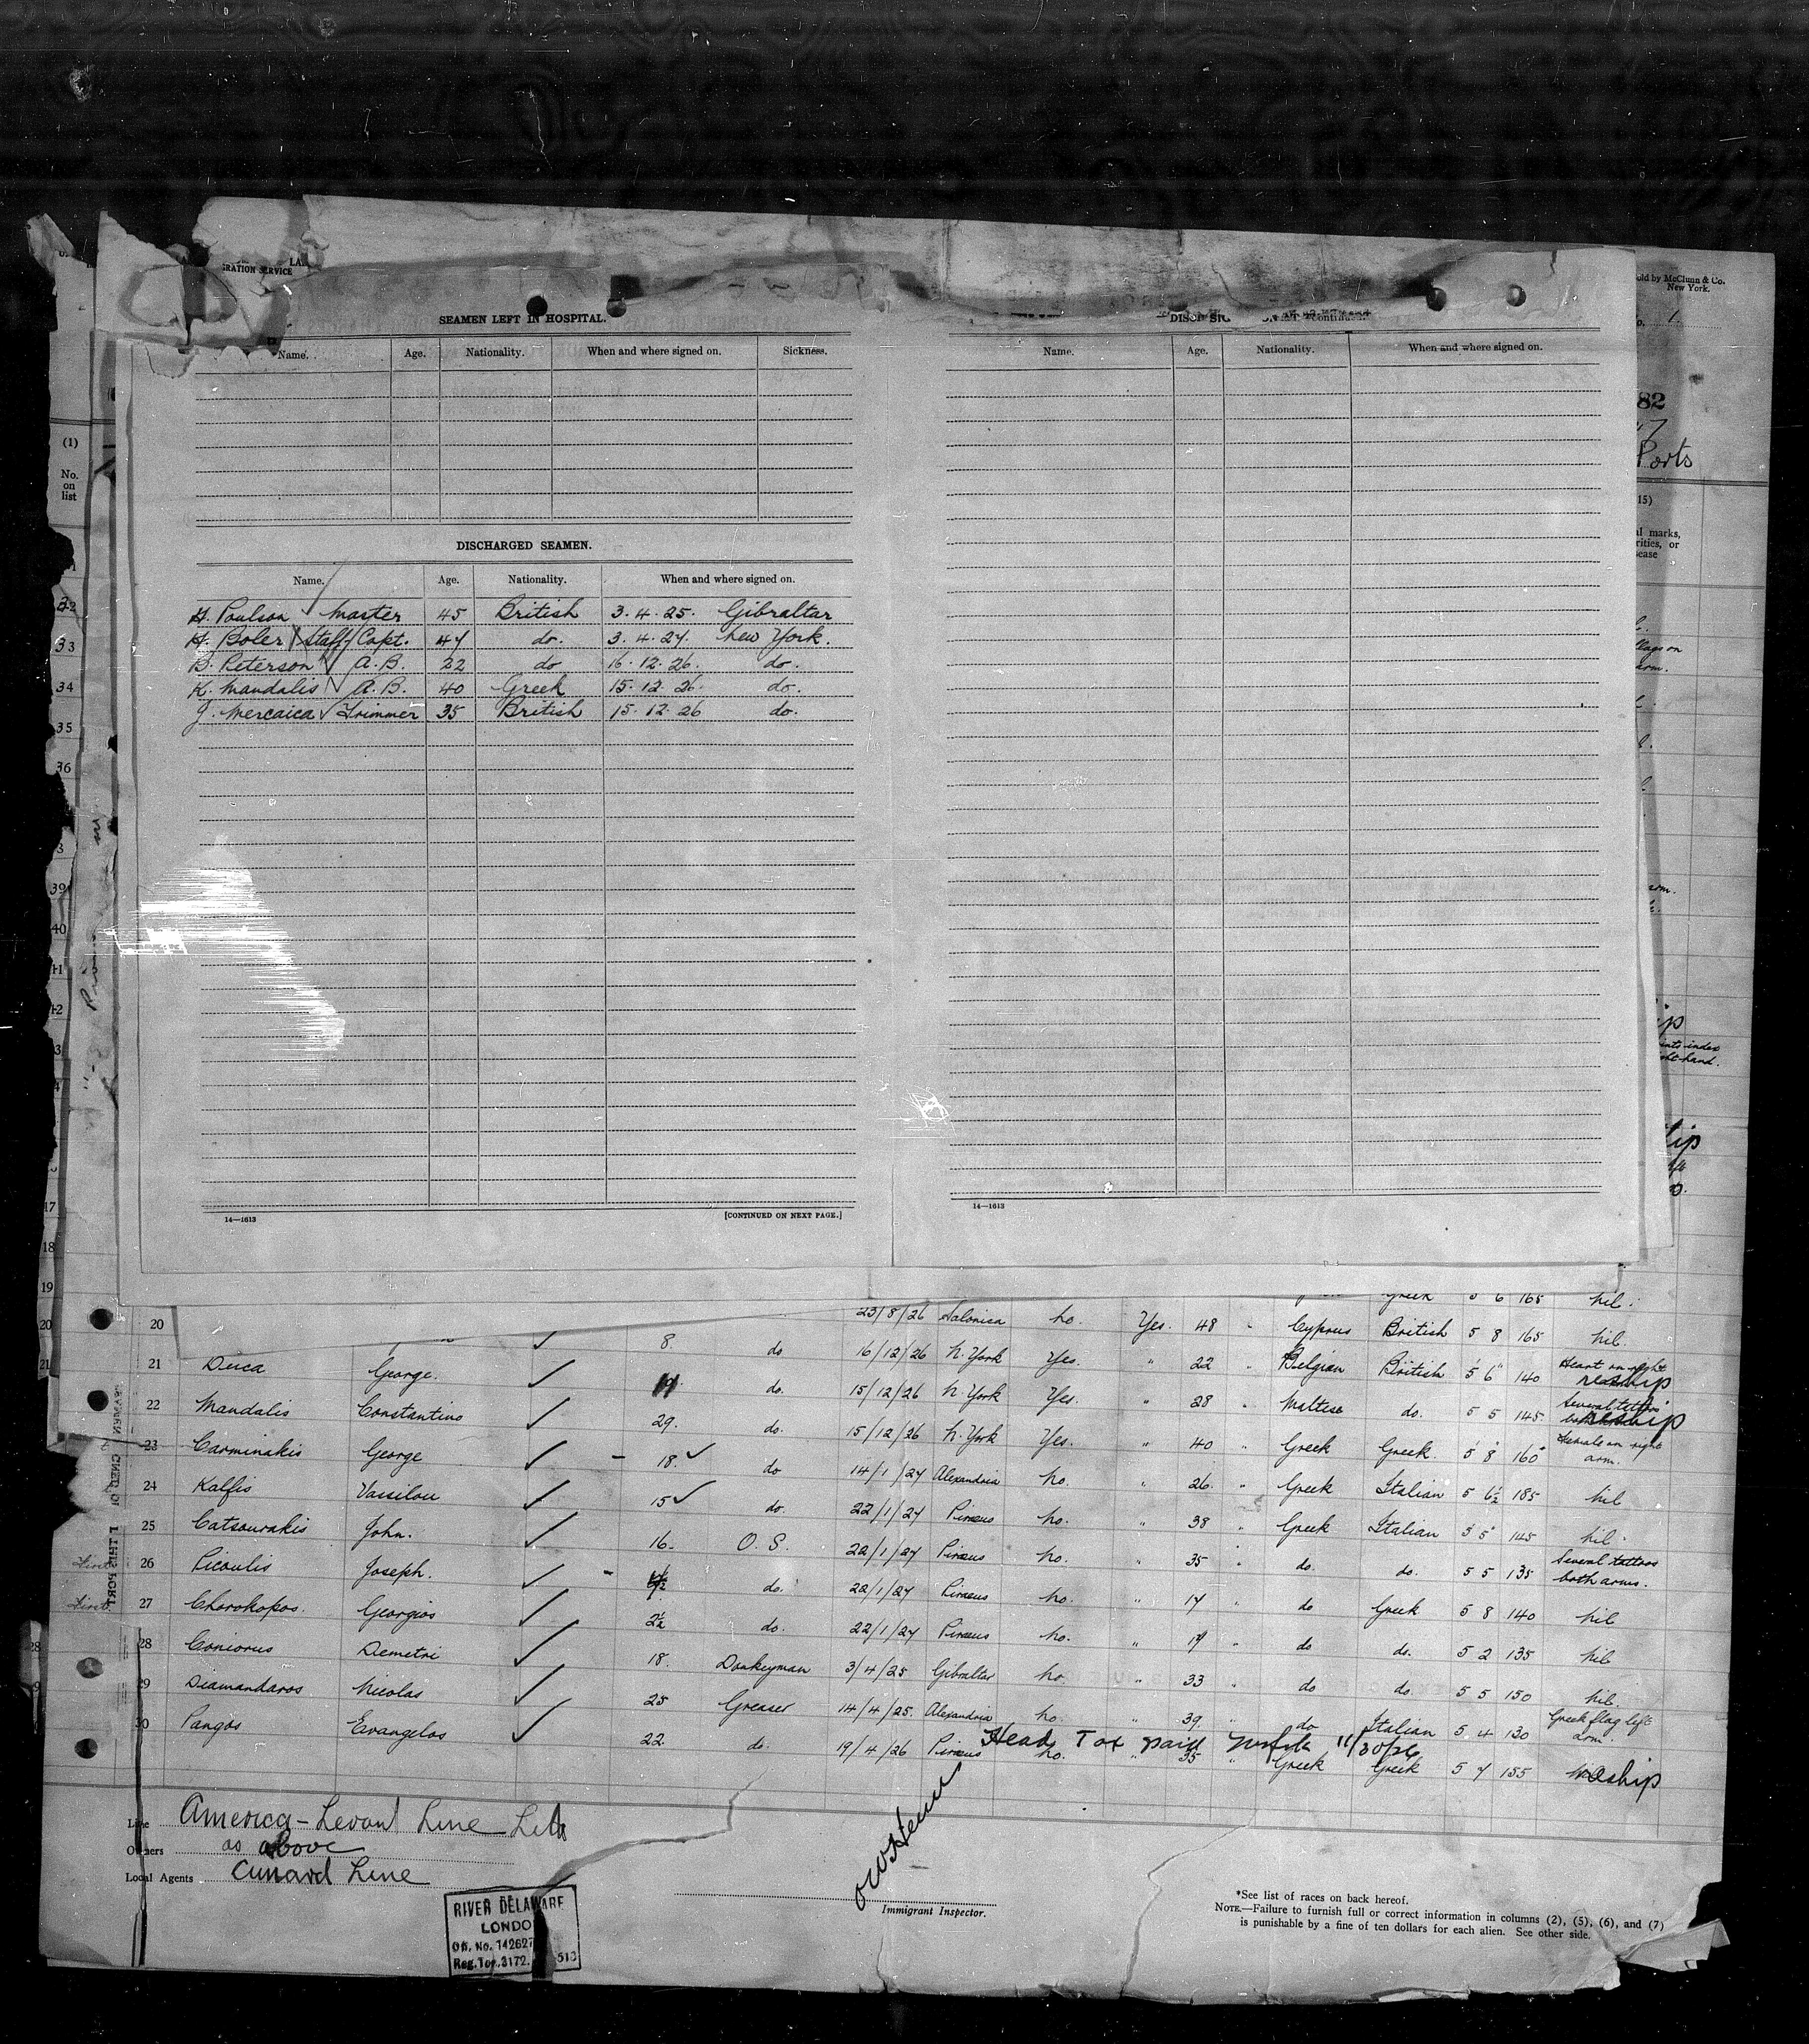 GRATION SERVICE
old by McClunn & Co.
New York.
1.
82
Ports
SEAMEN LEFT IN HOSPITAL.
Name. Age. Nationality. When and where signed on. Sickness.
Name. Age. Nationality. When and where signed on.
(1)
No.
on
list
DISCHARGED SEAMEN.
Name. Age. Nationality. When and where signed on.
H. Poulson Master 45 British 3.4.25. Gibraltar
H. Boler Staff Capt. 47 do. 3.4.27. New York.
B. Peterson A.B. 22 do 16.12.26. do.
K. Mandalis A.B. 40 Greek 15.12.26. do.
J. Mercaica Trimmer 35 British 15.12.26 do.
33
34
35
36
39
40
17
18
19
20
21
14—1613 [CONTINUED ON NEXT PAGE.]
14—1613
Greek 5 6 165 Nil.
20 23/8/26 Salonica No. Yes. 48 " Cyprus British 5 8 165 Nil.
8. do 16/12/26 N. York Yes. " 22 " Belgian British 5 6 140 Heart on right
reship
21 Duca George. 19 do. 15/12/26 N York Yes. " 28 " Maltese do. 5 5 145 Several tattoos
reship
22 Mandalis Constantino 29. do. 15/12/26 N. York Yes. " 40 " Greek Greek. 5 8 160 Female on right
arm.
23 Carminakis George 18. do 14/1/27 Alexandria No. " 26. " Greek Italian 5 6½ 185 Nil
24 Kalfis Vassilou 15 do. 22/1/27 Piraeus No. " 38 " Greek Italian 5 5 145 Nil.
25 Catsourakis John. 16. O.S. 22/1/27 Piraeus No. " 35 " do. do. 5 5 135 Several tattoos
both arms.
First 26 Picoulis Joseph. do. 22/1/27 Piraeus No. " 17 " do Greek 5 8 140 Nil
First 27 Chorokopos. Georgios 2½ do. 22/1/27 Piraeus No. " 19 " do do. 5 2 135 Nil
28 Coniorus Demetri 18. Donkeyman 3/4/25 Gibraltar No " 33 " do do. 5 5 150 Nil.
29 Diamandaros Nicolas 25 Greaser 14/4/25. Alexandria No. " 39. " do Italian 5 4 130 Greek flag left
arm.
30 Pangos Evangelos 22 do. 19/4/26 Piraeus No. " 35 " Greek Greek 5 7 155 reship
Head Tax paid Norfolk 11/30/26
Line America-Levant Line Ltd
Owners as above
Local Agents Cunard Line
RIVER DELAWARE
LONDO
Off. No. 142627
Reg. Ton. 3172. 513
Immigrant Inspector.
*See list of races on back hereof.
NOTE.—Failure to furnish full or correct information in columns (2), (5), (6), and (7)
is punishable by a fine of ten dollars for each alien. See other side.